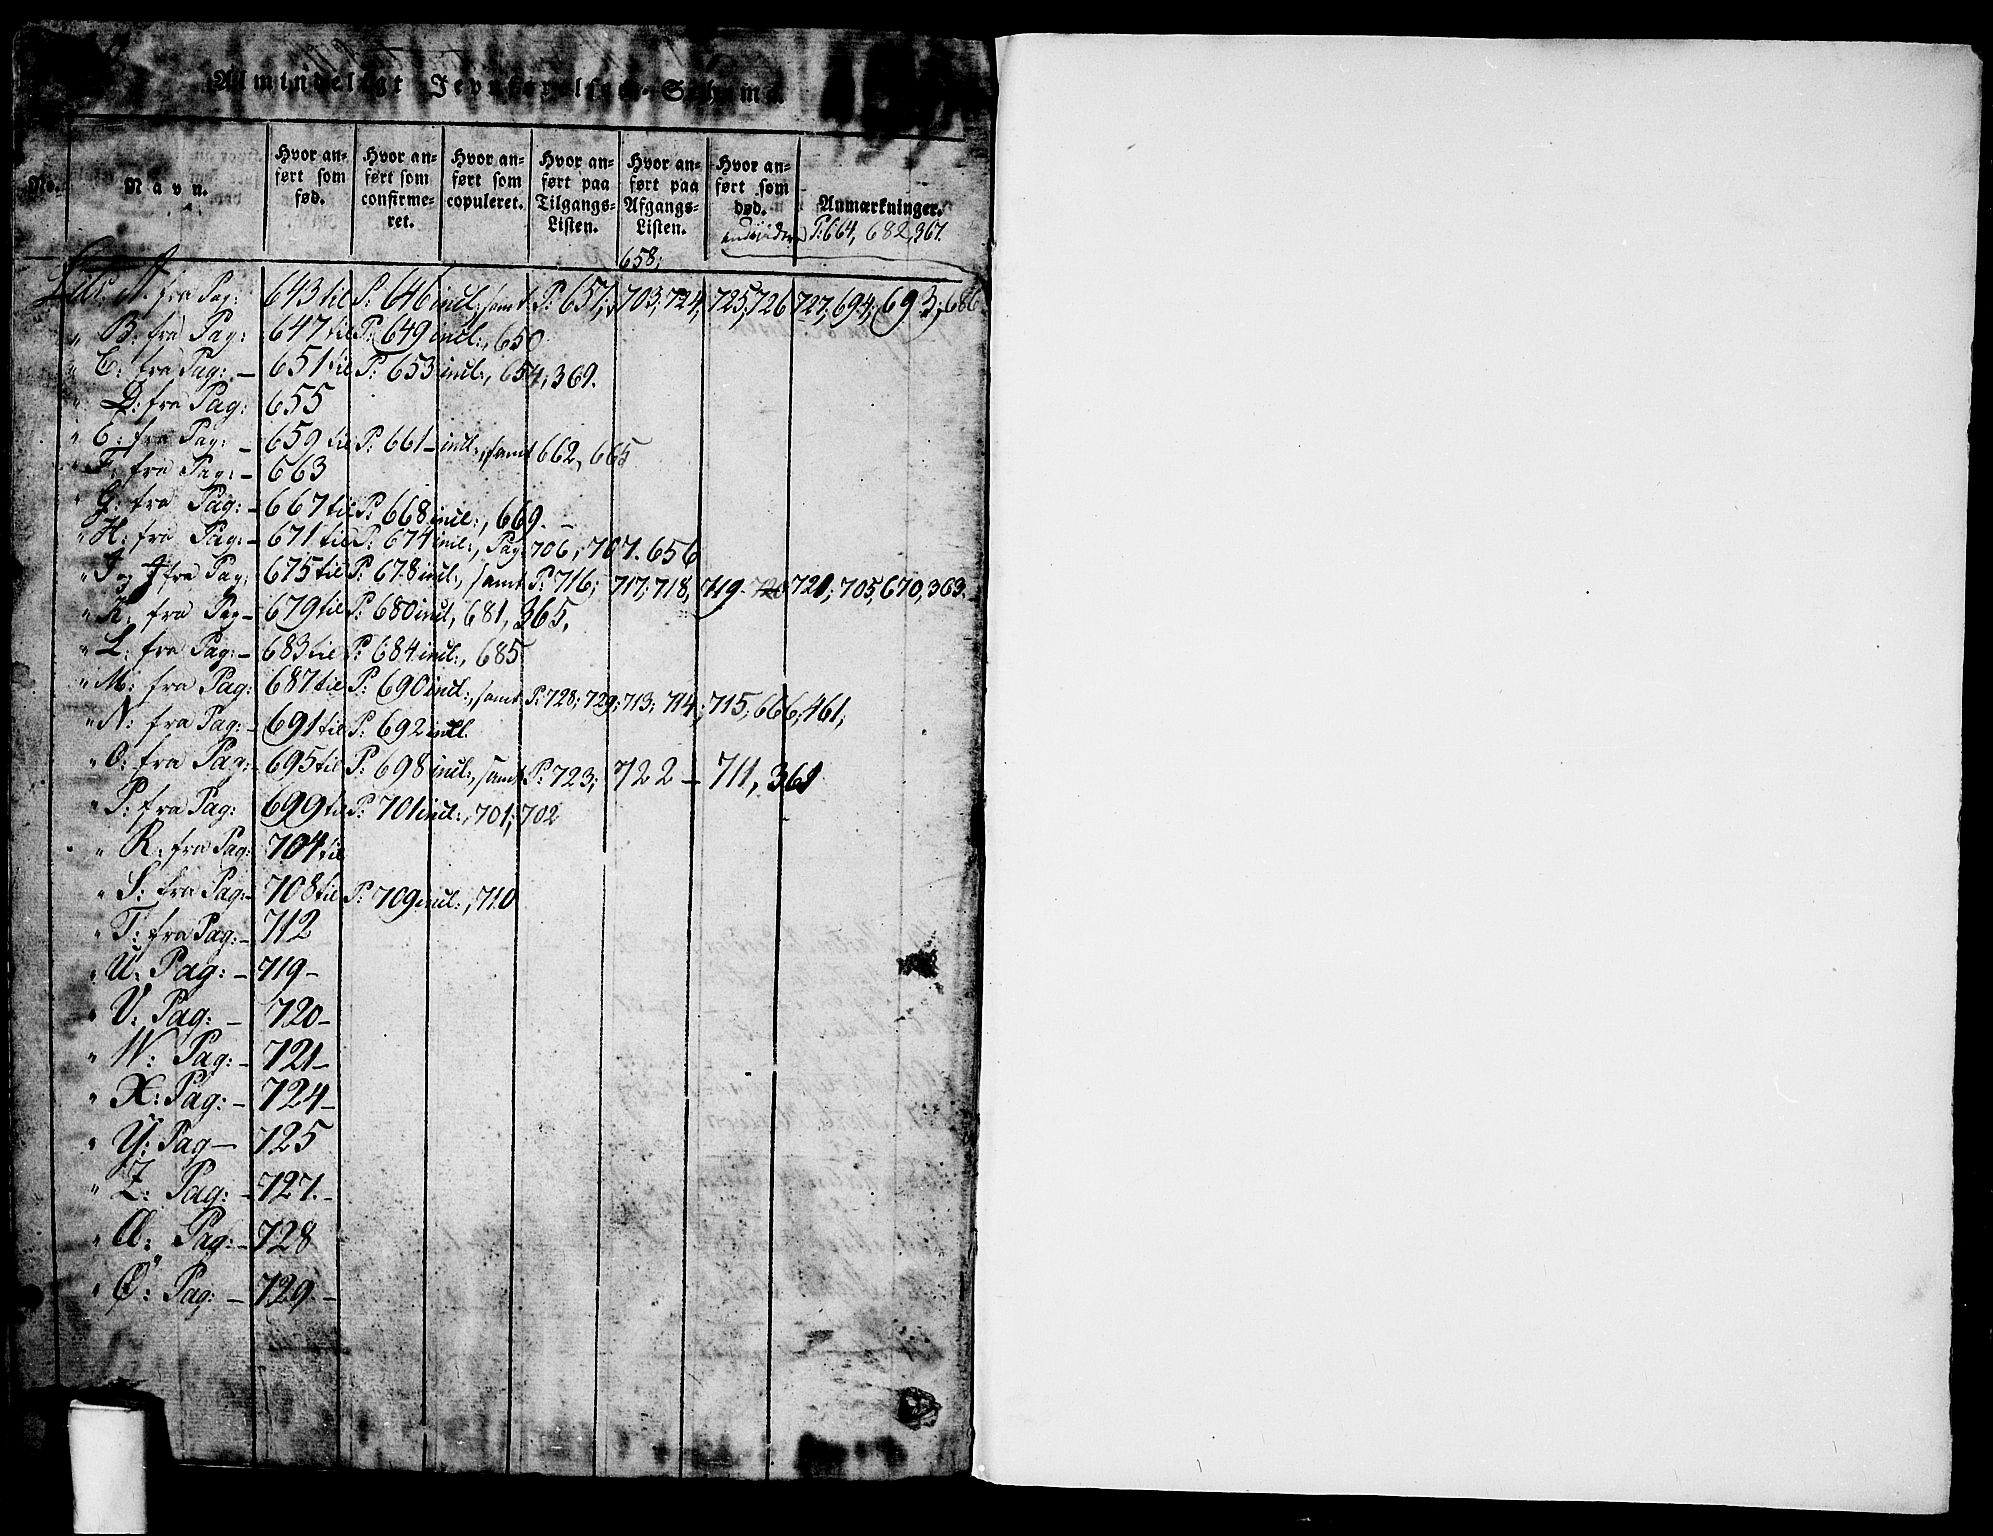 Almindeligt Jevnførelses-Schema.
No. Navn. Hvor anført som fød. Hvor anført som confirmeret. Hvor anført som copuleret. Hvor anført paa Tilgangs-Listen. Hvor anført paa Afgangs-Listen. Hvor anført som død. Anmærkninger.
P: 664, 682, 367.
658;
Litr. A. fra Pag: 643 til P: 646 incl:, samt P: 657; 703; 724, 725, 726 727, 694, 693; 686
" B: fra Pag: 647 til P: 649 incl:, 650
" C: fra Pag: – 651 til P: 653 incl:, 654, 369.
" D: fra Pag: 655
" E: fra Pag: – 659 til P: 661 – incl:, samt 662, 665
" F. fra Pag: – 663
" G: fra Pag: – 667 til P: 668 incl:, 669. –
" H: fra Pag: – 671 til P: 674 incl:, Pag: 706, 707. 656
" I og J fra Pag: 675 til P: 678 incl:, samt P: 716; 717; 718, 719 – 720 721; 705, 670, 363.
" K: fra Pag – 679 til P: 680 incl, 681, 365,
" L: fra Pag: – 683 til P: 684 incl:, 685
" M: fra Pag: 687 til P: 690 incl:, samt P: 728; 729; 713; 714; 715; 666; 461;
" N: fra Pag: – 691 til P: 692 incl.
" O: fra Pag: – 695 til P: 698 incl:, samt P: 723; 722 – 711, 361
" P: fra Pag: 699 til P: 701 incl:, 701; 702
" R: fra Pag: 704 til
" S: fra Pag: – 708 til P: 709 incl:, 710
" T: fra Pag: – 712
" U: Pag: – 719 –
" V: Pag: – 720 –
" W: Pag: – 721 –
" X: Pag: – 724 –
" Y: Pag – 725
" Z: Pag: – 727. –
" Å: Pag: – 728
" Ø: Pag: – 729 –